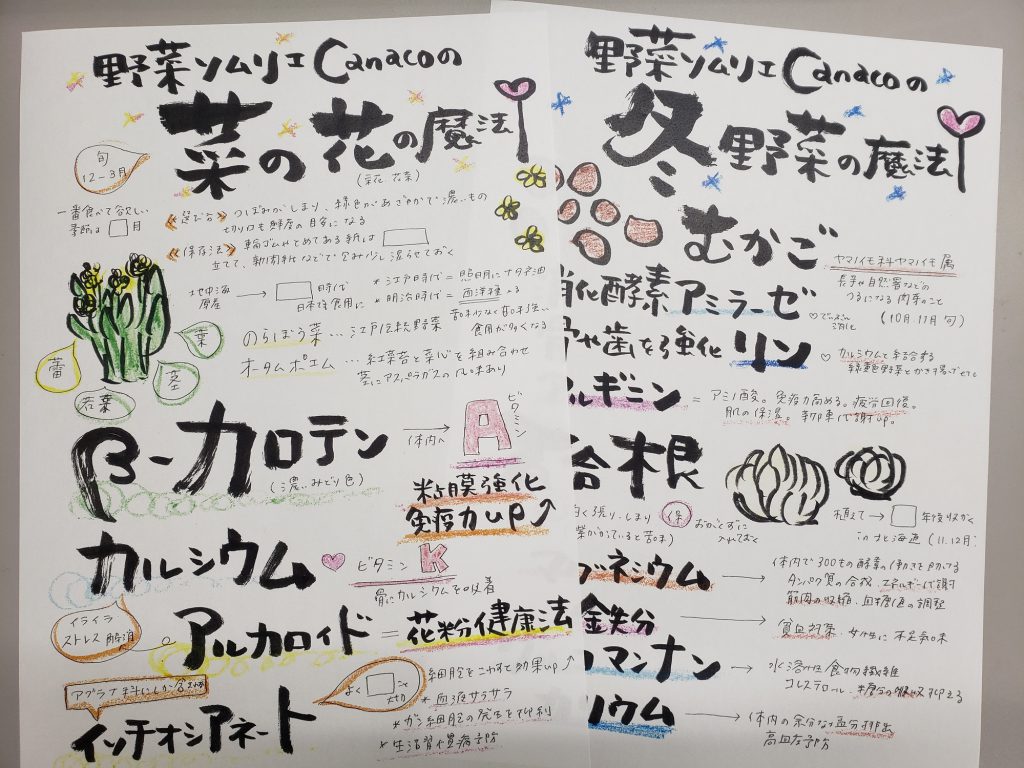 野菜ソムリエCanacoの
菜の花の魔法
(菜花、花菜)
旬
12-3月
一番食べて欲しい
季節は□月
《選び方》つぼみがしまり、緑色があざやかで濃いもの
切り口も鮮度の目安になる
《保存法》輪ゴムやとめてある紙は□
立て、新聞紙などで包み少し湿らせておく
地中海
原産
→□時代
日本で食用に
*江戸時代=照明用にナタネ油
*明治時代=西洋種
食用が多くなる
のらぼう菜…江戸伝統野菜
オータムポエム…紅菜苔と菜心を組み合わせ
茎にアスパラガスの風味あり
蕾
葉
茎
若葉
β-カロテン
(濃いみどり色)
→
体内へ
ビタミン
A
粘膜強化
免疫力up↑
カルシウム
ビタミンK
骨にカルシウムを吸着
イライラ
ストレス解消
アルカロイド=花粉健康法
アブラナ科にしか含まれぬ
イッチオシアネート
よく□こと
大切
細胞をこわすと効果up↑
*血液サラサラ
*ガン細胞の発生を抑制
*生活習慣病予防
野菜ソムリエCanacoの
冬野菜の魔法
むかご
ヤマノイモ科ヤマノイモ属
長芋や自然薯などの
つるになる肉芽のこと
(10月、11月旬)
消化酵素アミラーゼ
でんぷん
消化
や歯を強化リン
カルシウムと結合する
緑黄色野菜とかき揚げで
ルギニン
=アミノ酸。免疫力高める。疲労回復。
肌の保湿。新陳代謝up。
合根
固く張り、しまり
紫がかっていると苦味)
保
おがくずに
入れておく
植えて→□年後収かく
in北海道(11.12月)
グネシウム
→体内で300もの酵素の働きを助ける
タンパク質の合成・エネルギー代謝
筋肉の収縮・血糖値の調整
金鉄分
→貧血対策・女性に不足気味
コマンナン
→水溶性食物繊維
コレステロール・糖分の吸収抑える
リウム
→体内の余分な塩分排出
高血圧予防